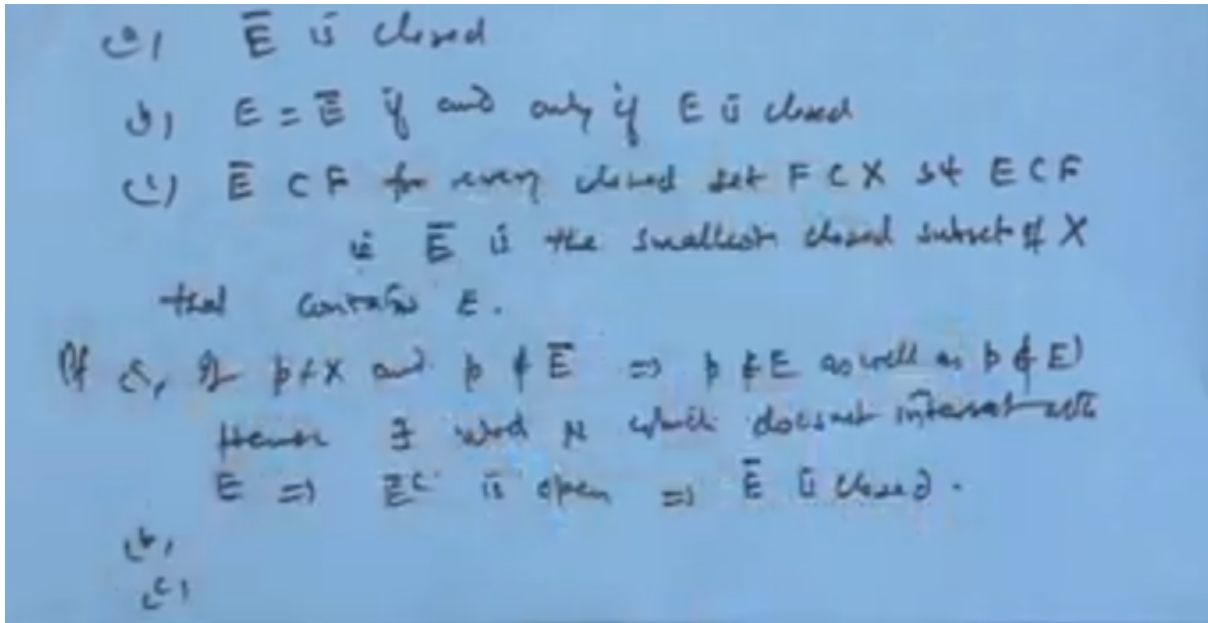 (a) E̅ is closed
(b) E = E̅ if and only if E is closed
(c) E̅ ⊂ F for every closed set F ⊂ X st E ⊂ F
ie E̅ is the smallest closed subset of X
that contains E.
Pf (a) If p ∈ X and p ∉ E̅ => p ∉ E as well as p ∉ E'
Hence ∃ nbd N which does not intersect with
E => E̅ᶜ is open => E̅ is closed.
(b)
(c)